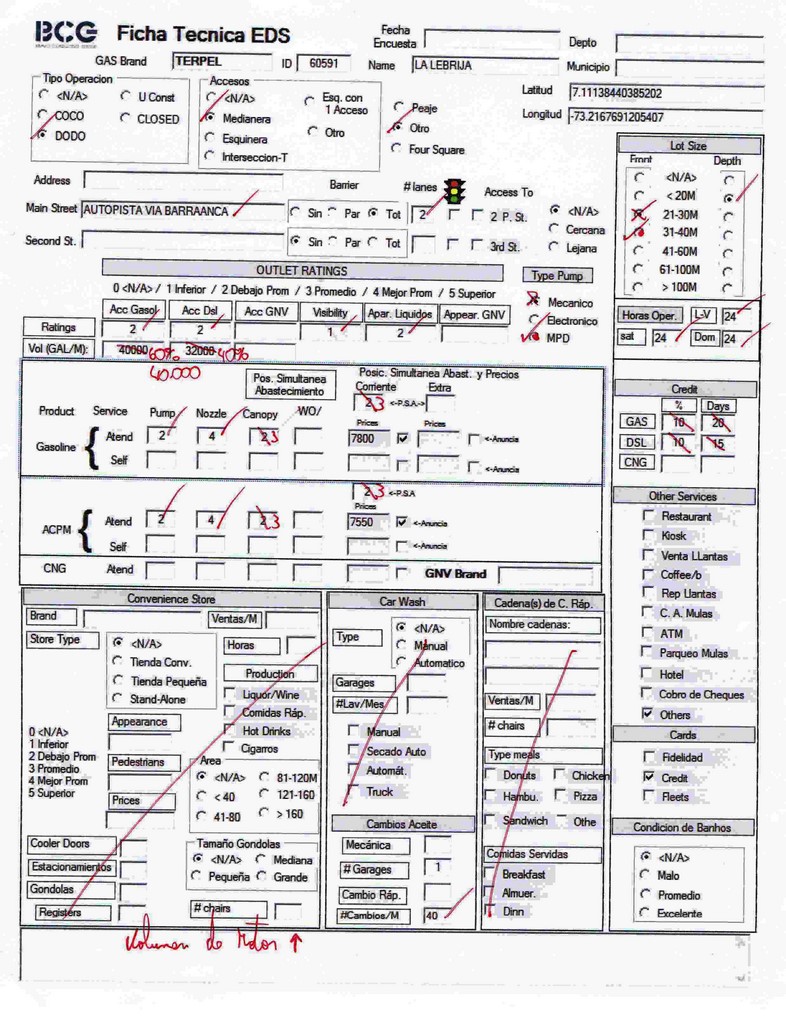 BCG Ficha Tecnica EDS
Fecha Encuesta
Depto
GAS Brand TERPEL ID 60591 Name LA LEBRIJA Municipio
Tipo Operacion
<N/A> U Const
COCO CLOSED
DODO
Accesos
<N/A> Esq. con 1 Acceso
Medianera Otro
Esquinera
Interseccion-T
Peaje
Otro
Four Square
Latitud 7.11138440385202
Longitud -73.2167691205407
Lot Size
Front Depth
<N/A>
< 20M
21-30M
31-40M
41-60M
61-100M
> 100M
Address
Barrier # lanes Access To
Main Street AUTOPISTA VIA BARRAANCA Sin Par Tot 2 2 P. St.
Second St. Sin Par Tot 3rd St.
<N/A>
Cercana
Lejana
OUTLET RATINGS
0 <N/A> / 1 Inferior / 2 Debajo Prom / 3 Promedio / 4 Mejor Prom / 5 Superior
Acc Gasol Acc Dsl Acc GNV Visibility Apar. Liquidos Appear. GNV
Ratings 2 2 1 2
Vol (GAL/M): 40000 60% 32000 40%
40.000
Type Pump
Mecanico
Electronico
MPD
Horas Oper. L-V 24
sat 24 Dom 24
Pos. Simultanea Abastecimiento
Posic. Simultanea Abast. y Precios
Corriente Extra
2 3 <-P.S.A->
Product Service Pump Nozzle Canopy WO/ Prices Prices
Gasoline Atend 2 4 2 3 7800 <-Anuncia
Self <-Anuncia
2 3 <-P.S.A
Prices
ACPM Atend 2 4 2 3 7550 <-Anuncia
Self <-Anuncia
CNG Atend GNV Brand
Credit
% Days
GAS 10 20
DSL 10 15
CNG
Other Services
Restaurant
Kiosk
Venta LLantas
Coffee/b
Rep Llantas
C. A. Mulas
ATM
Parqueo Mulas
Hotel
Cobro de Cheques
Others
Cards
Fidelidad
Credit
Fleets
Condicion de Banhos
<N/A>
Malo
Promedio
Excelente
Convenience Store
Brand Ventas/M
Store Type
<N/A>
Tienda Conv.
Tienda Pequeña
Stand-Alone
Horas
Production
Liquor/Wine
Comidas Ráp.
Hot Drinks
Cigarros
0 <N/A>
1 Inferior
2 Debajo Prom
3 Promedio
4 Mejor Prom
5 Superior
Appearance
Pedestrians
Prices
Area
<N/A> 81-120M
< 40 121-160
41-80 > 160
Cooler Doors
Estacionamientos
Gondolas
Registers
Tamaño Gondolas
<N/A> Mediana
Pequeña Grande
# chairs
Car Wash
Type
<N/A>
Manual
Automatico
Garages
#Lav/Mes
Manual
Secado Auto
Automát.
Truck
Cambios Aceite
Mecánica
# Garages 1
Cambio Ráp.
#Cambios/M 40
Cadena(s) de C. Ráp.
Nombre cadenas:
Ventas/M
# chairs
Type meals
Donuts Chicken
Hambu. Pizza
Sandwich Othe
Comidas Servidas
Breakfast
Almuer.
Dinn
Volumen de Motor ↑